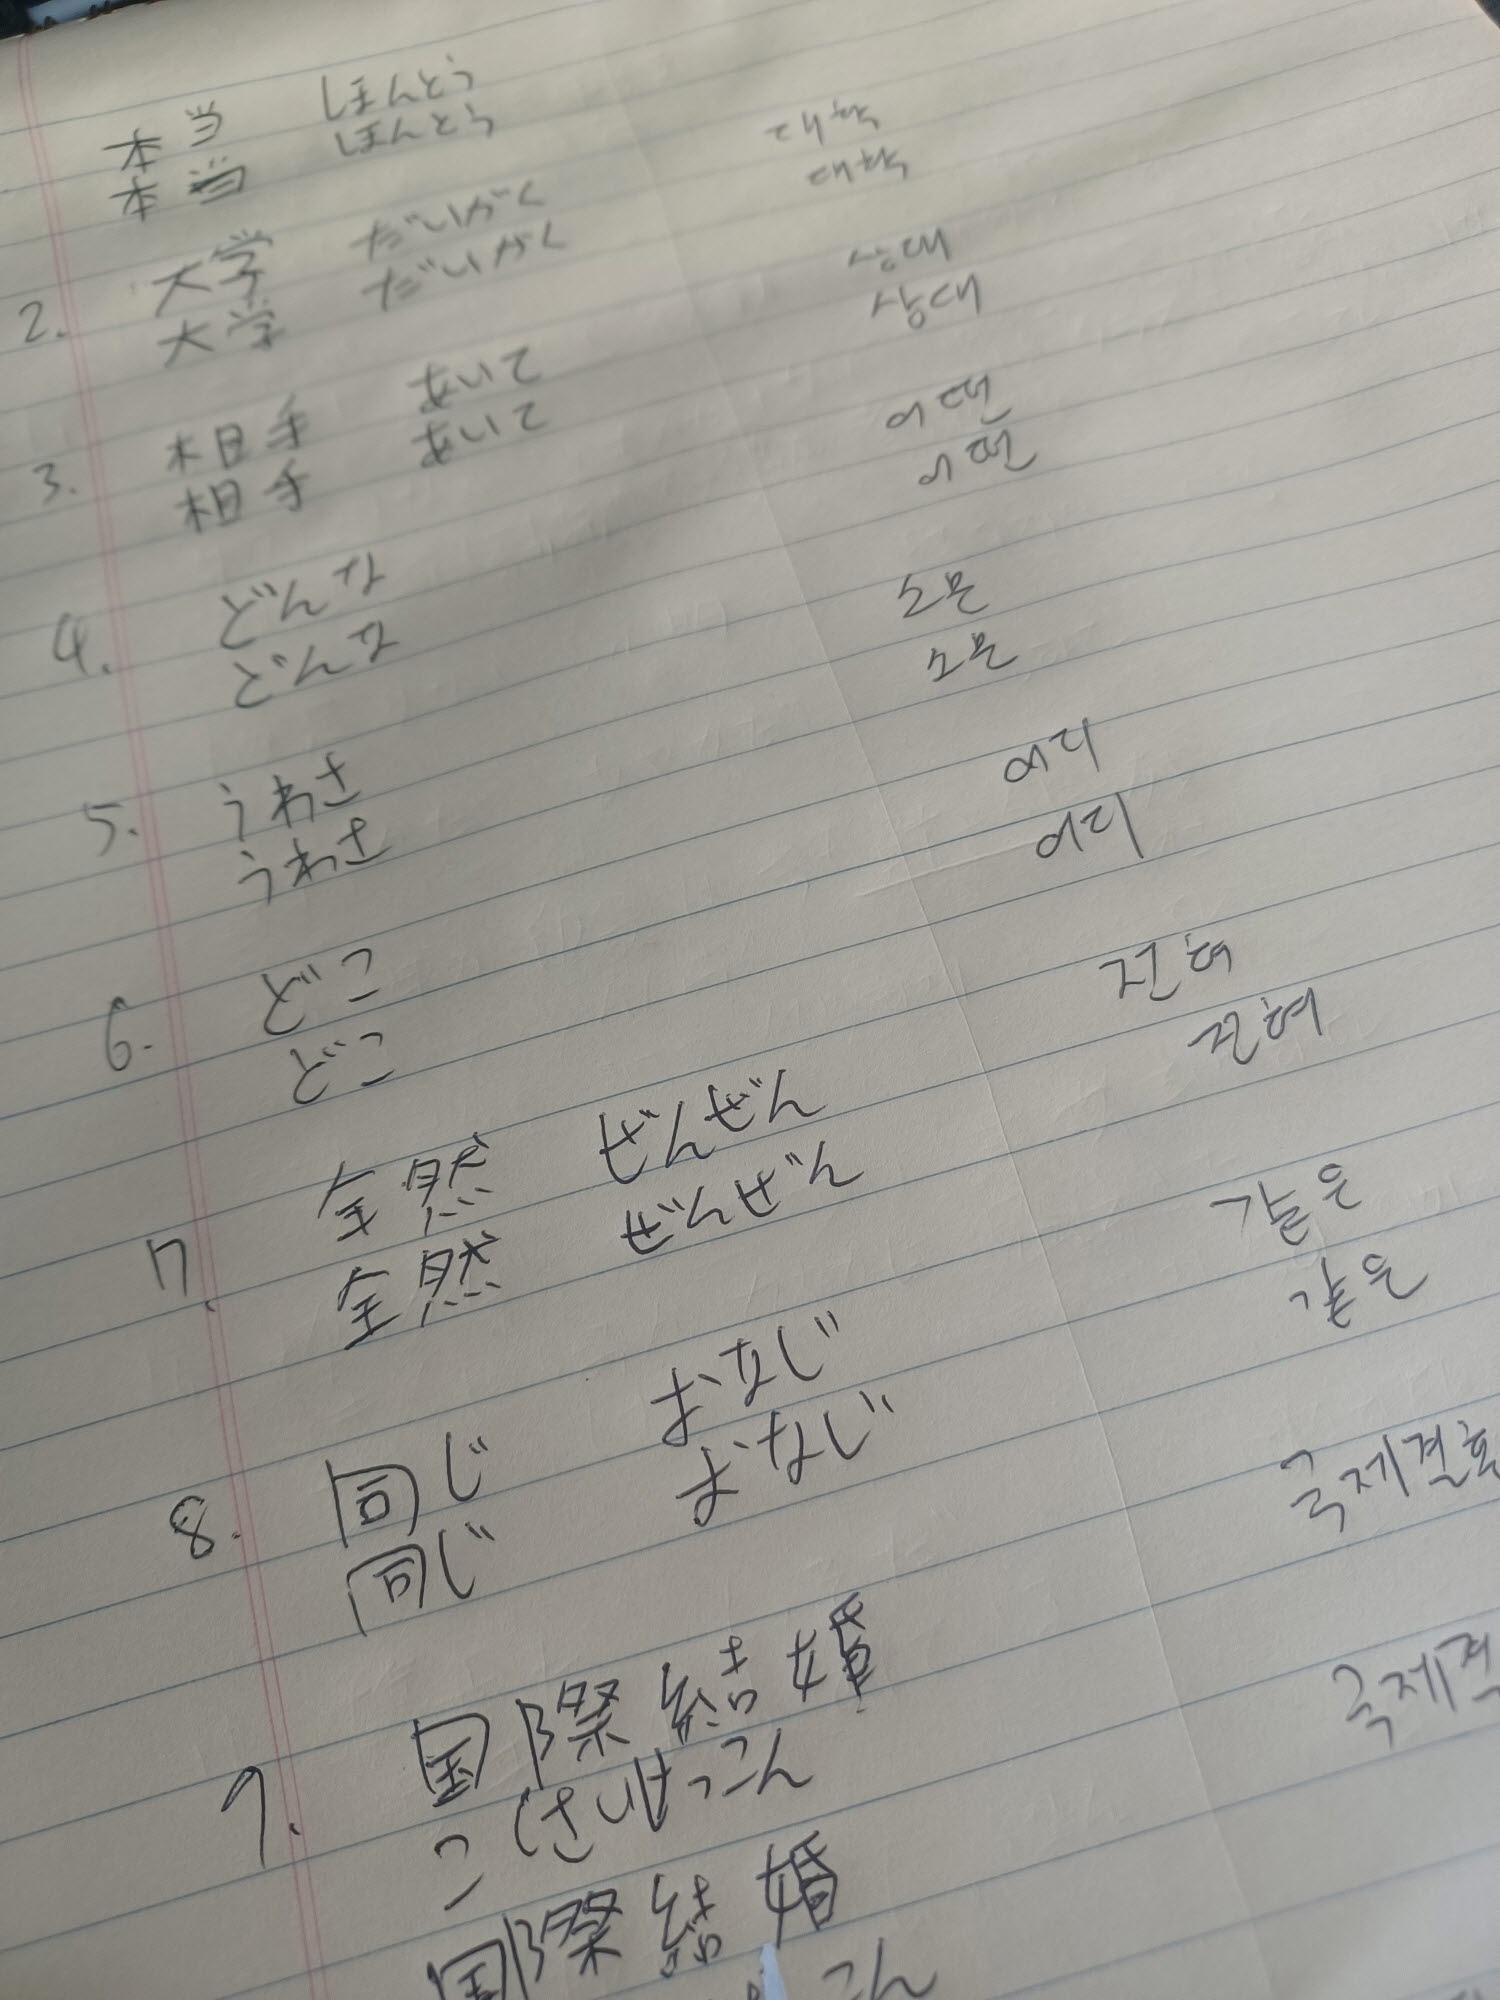 本当 ほんとう
本当 ほんとう
2. 大学 だいがく 대학
大学 だいがく 대학
3. 相手 あいて 상대
相手 あいて 상대
4. どんな 어떤
どんな 어떤
5. うわさ 소문
うわさ 소문
6. どこ 어디
どこ 어디
7. 全然 ぜんぜん 전혀
全然 ぜんぜん 전혀
8. 同じ おなじ 같은
同じ おなじ 같은
9. 国際結婚 국제결혼
こくさいけっこん
国際結婚 국제결
こん